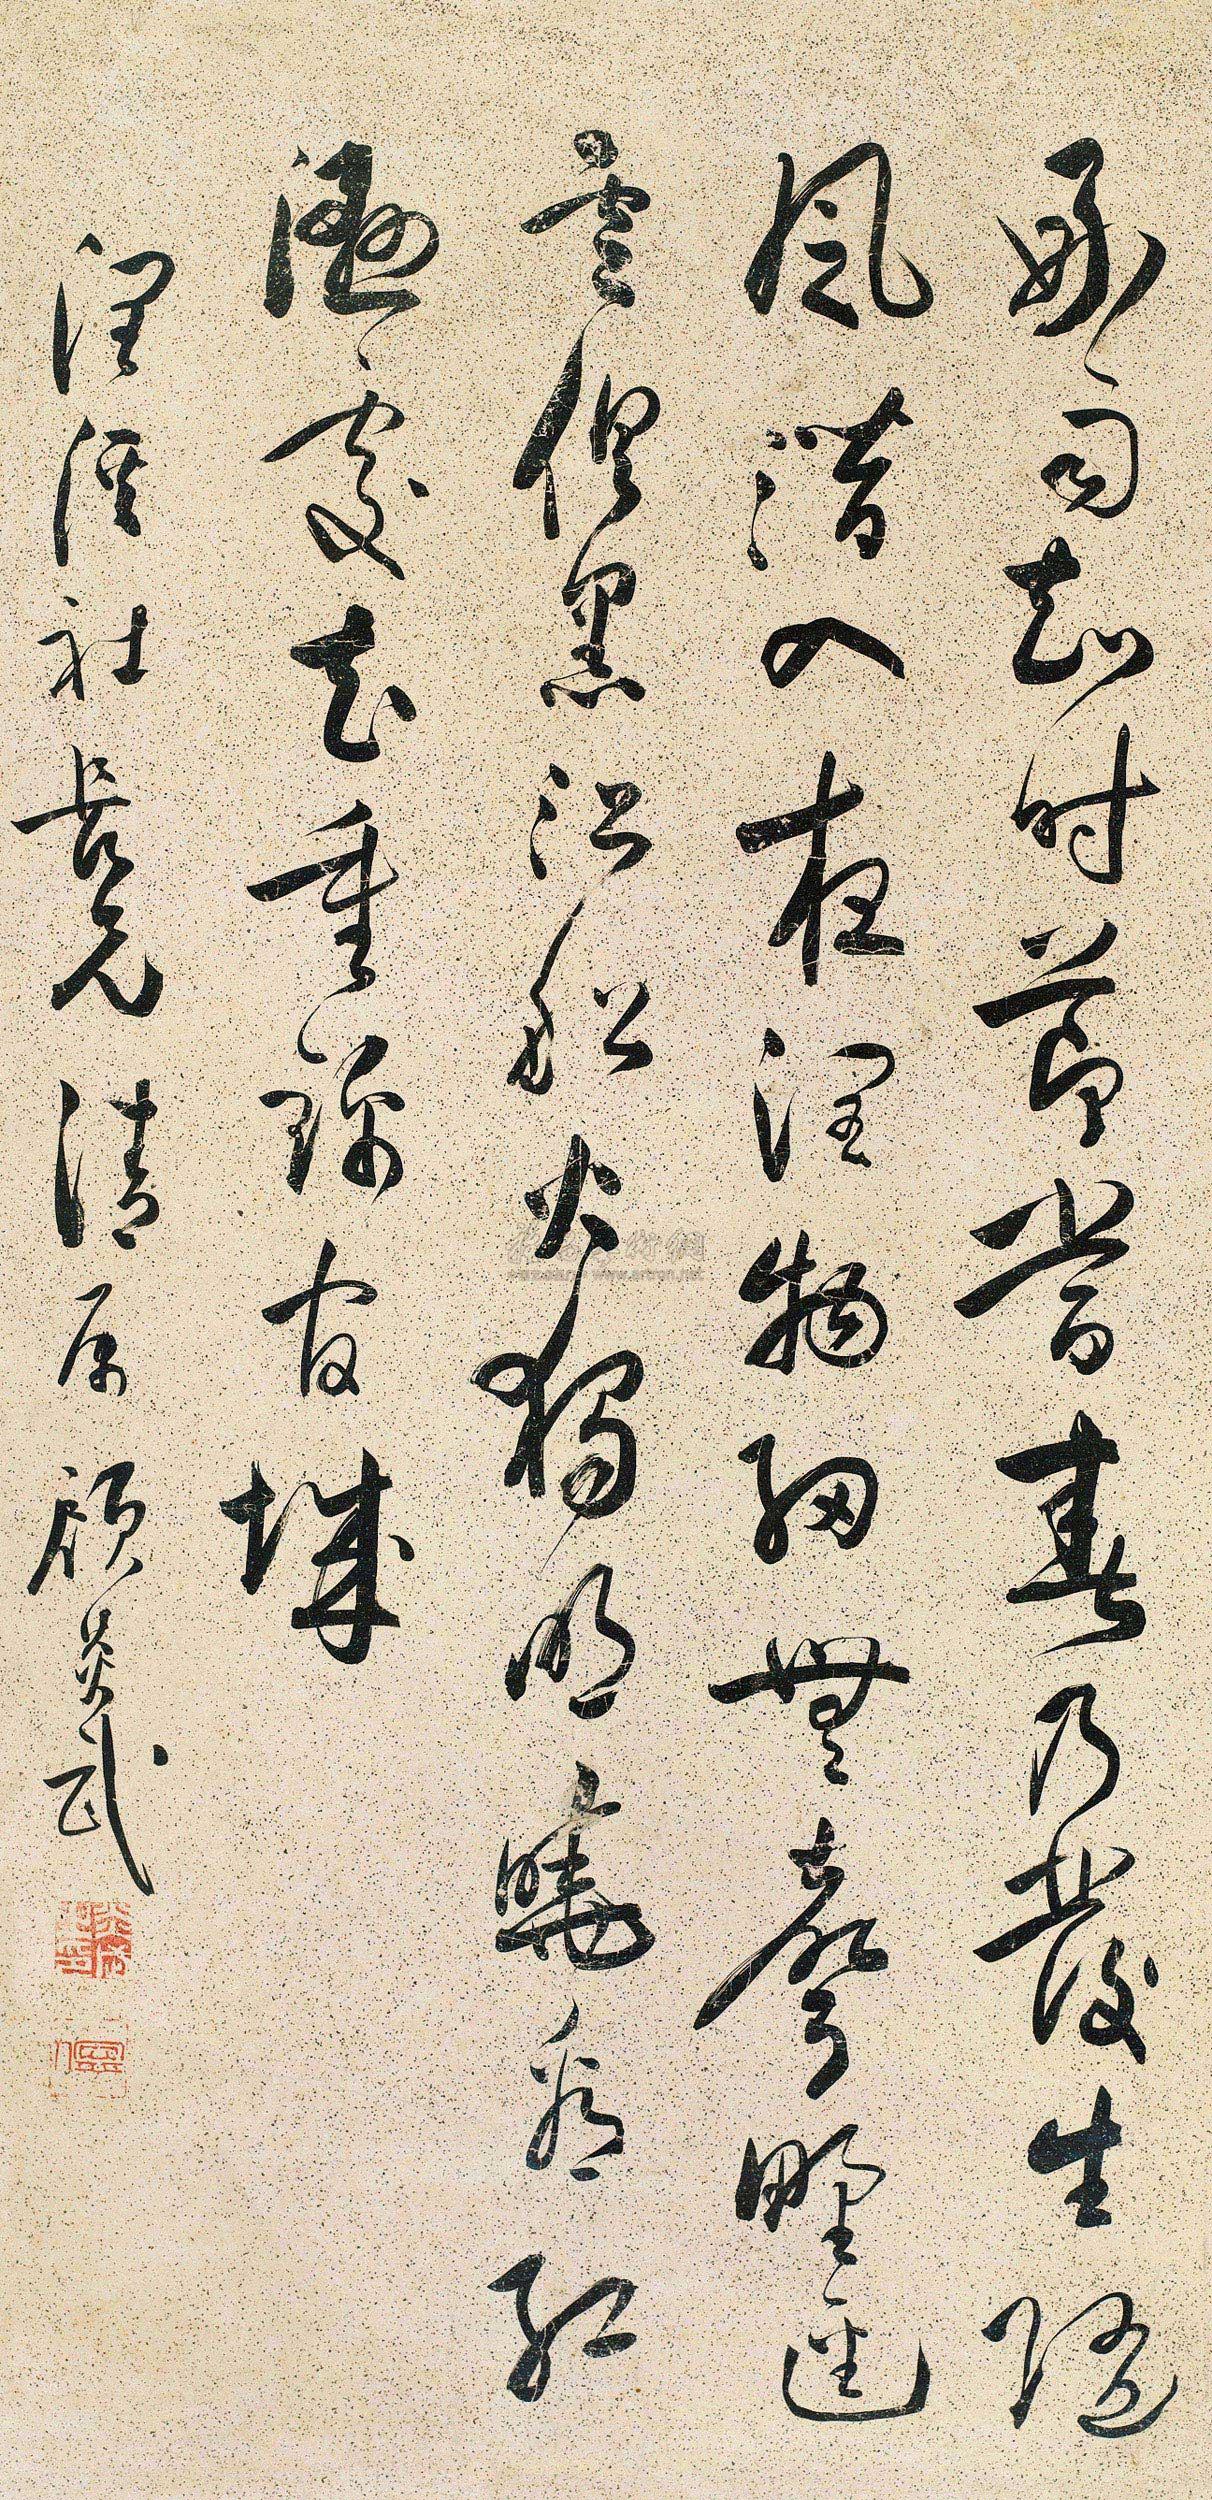 好雨知时節當春乃發生随
風潛入夜潤物細無聲野逕
雲俱黑江船火獨明曉看紅
濕處花重錦官城
潤社長兄清屬顧炎武
www.artron.net